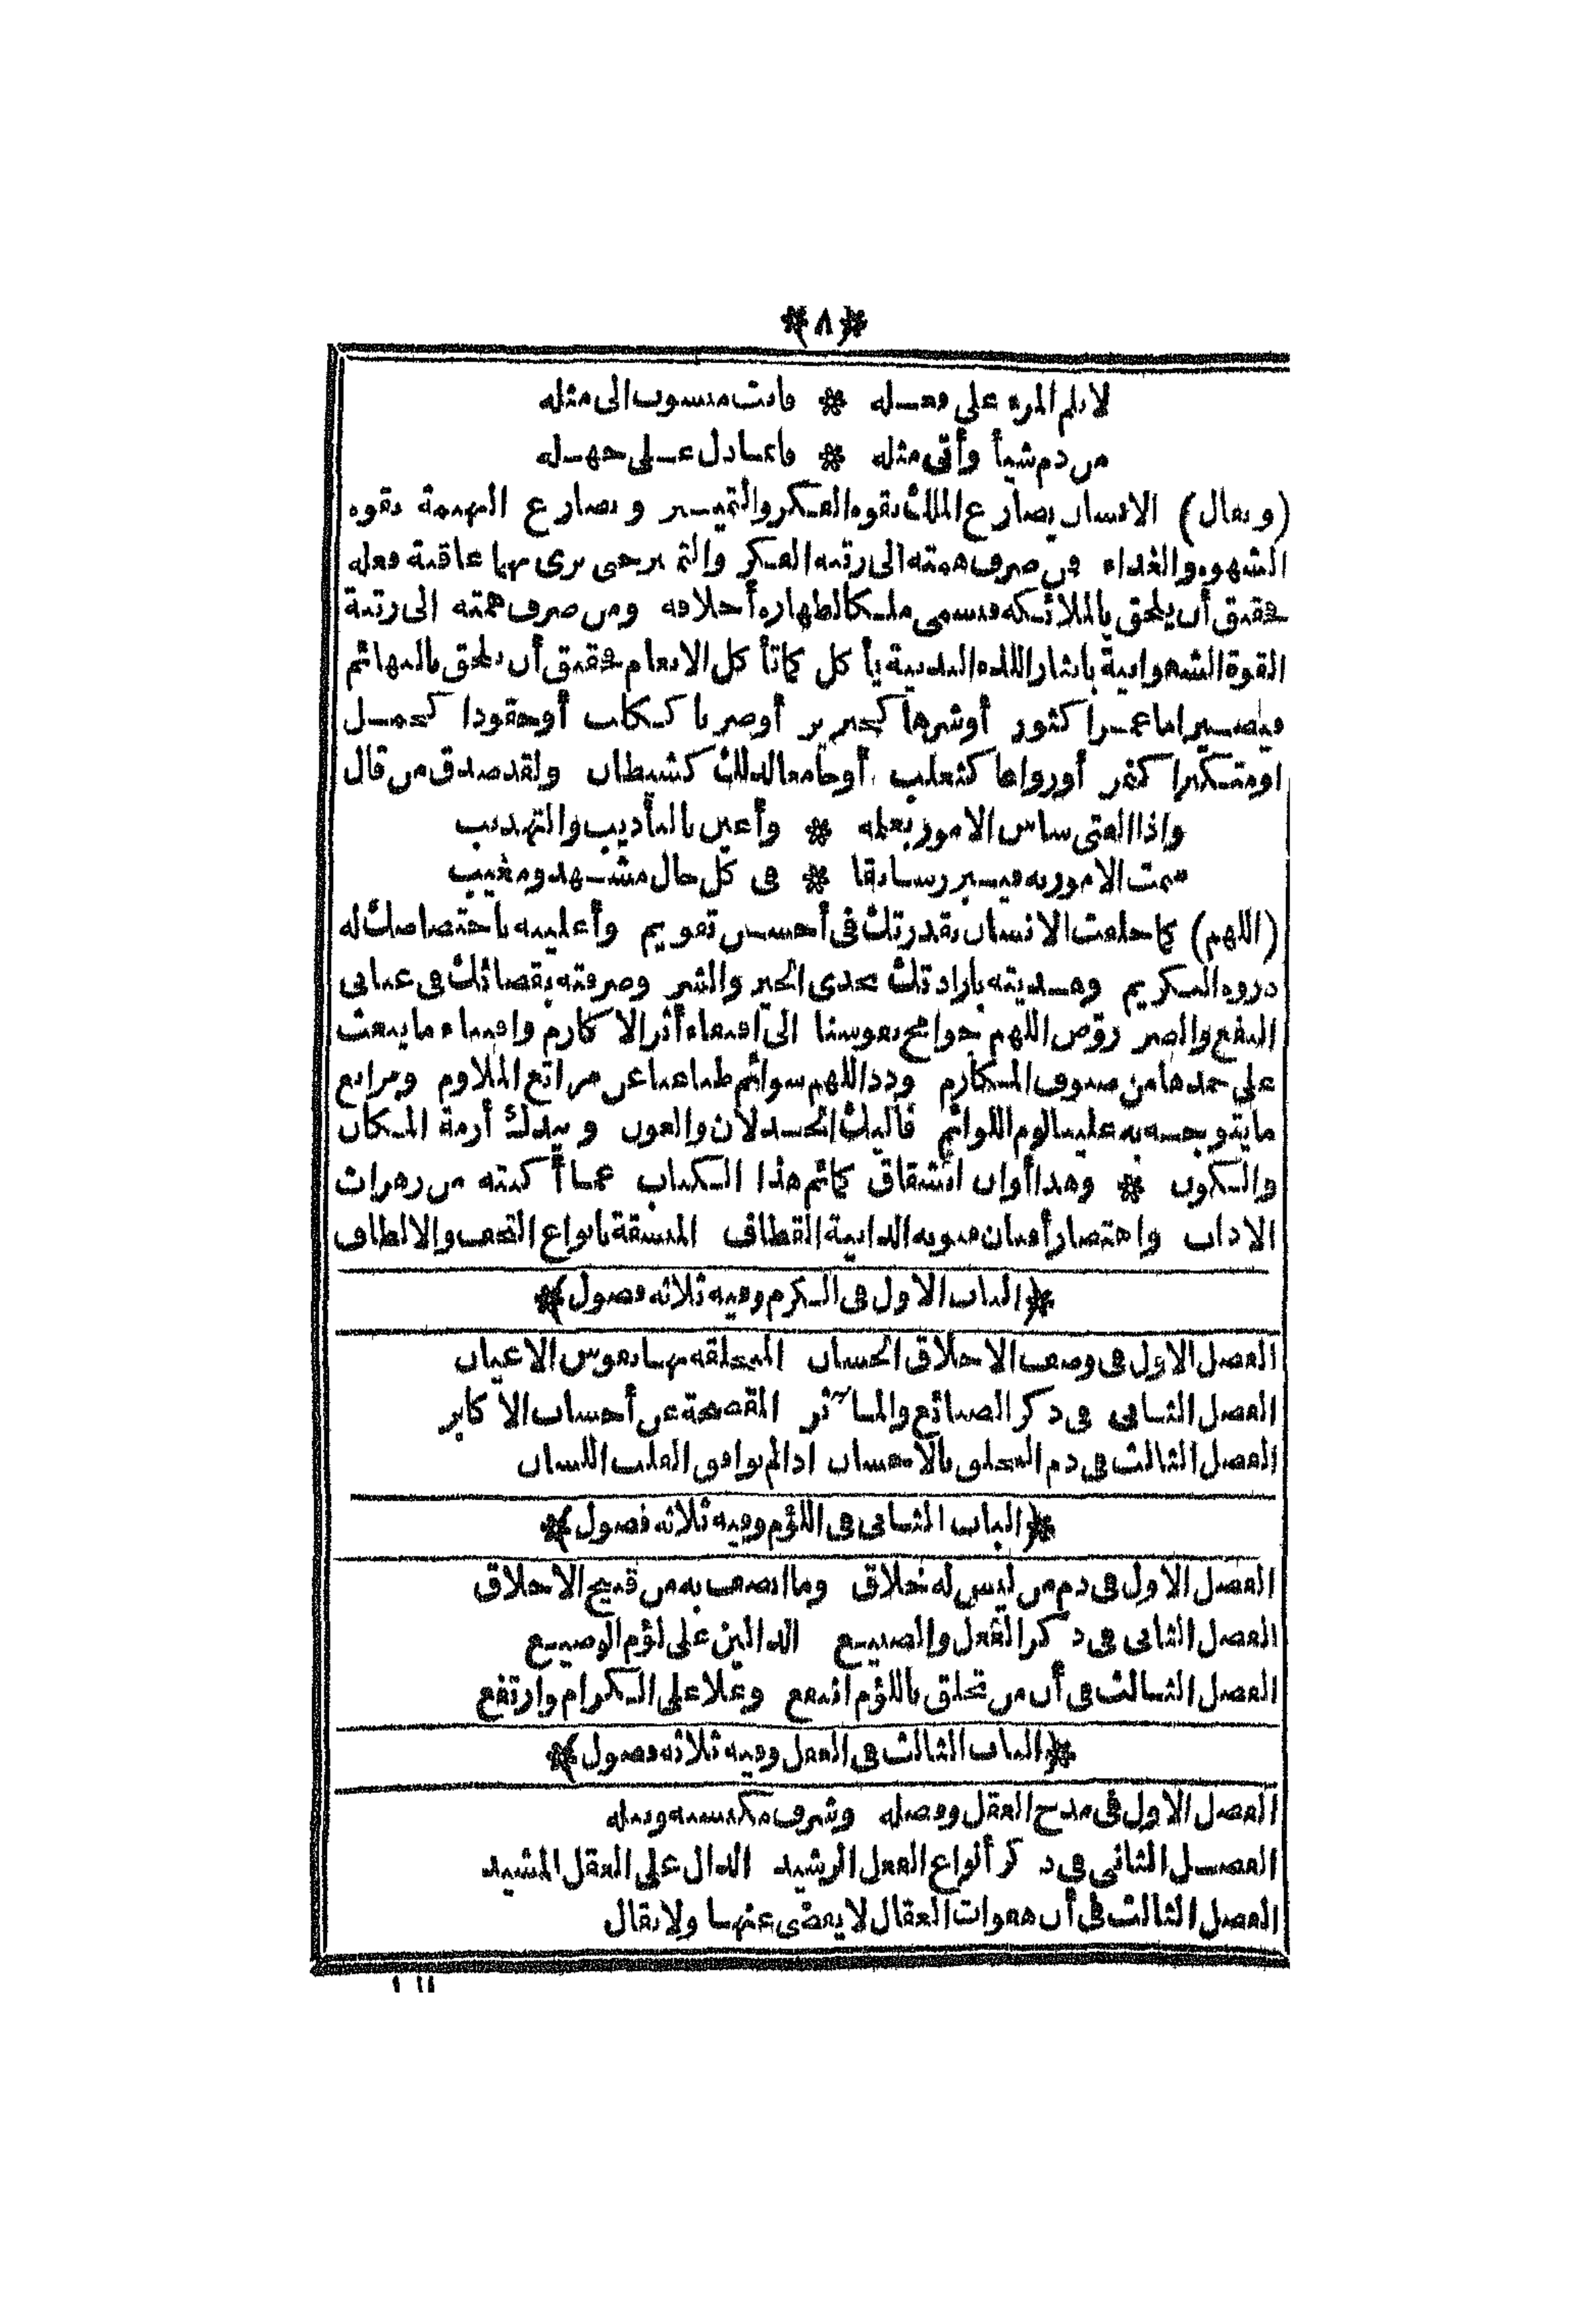 ﴿٨﴾
لا تلم المرء على فعله * فانت منسوب الى مثله
من ذم شيأ وأتى مثله * فاعادل عـلى جهـله
(ويقال) الانسان يضارع الملك بقوة الفكر والتمييـز ويضارع البهيمة بقوة
الشهوة والغذاء فمن صرف همته الى رتبة الفكر والتمييز حتى يرى بها عاقبة فعله
فحقيق أن يلحق بالملائكة فيسمى ملكا لطهارة أخلاقه ومن صرف همته الى رتبة
القوة الشهوانية بايثار اللذة البدنية يأكل كما تأكل الانعام فحقيق أن يلحق بالبهائم
فيصـير اما غمـرا كثور أوشرها كخنزير أوضريا ككلب أوحقودا كجمـل
اومتكبرا كنمر أورواغا كثعلب أوجامعا لذلك كشيطان ولقد صدق من قال
واذا الفتى ساس الامور بعلمه * وأعين بالتأديب والتهذيب
سمت الامور به فبـرز سابقا * فى كل حال مشـهد ومغيب
(اللهم) كما خلقت الانسان بقدرتك فى أحسـن تقويم وأعليته باختصاصك له
ذروة التكريم وهـديته بارادتك نجدى الخير والشر وصرفته بقضائك فى عنانى
النفع والضر روّض اللهم جوامح نفوسنا الى اقتفاء أثر الاكارم واقتناء ما يبعث
على حمدها من صنوف المكارم وذد اللهم سوائم طباعنا عن مراتع الملاوم ومرابع
ما يتوجـه به علينا لوم اللوائم فاليك الخـذلان والعون وبيدك أزمة المكان
والكون * وهذا أوان انشقاق كمائم هذا الكتاب عما أكنته من زهرات
الاداب واهتصار أفنان فنونه الدانية القطاف المنسقة بانواع التحف والالطاف
﴿الباب الاول فى الكرم وفيه ثلاثة فصول﴾
الفصل الاول فى وصف الاخلاق الحسان المتخلقة بها نفوس الاعيان
الفصل الثانى فى ذكر الصنائع والمآثر المفصحة عن أحساب الاكابر
الفصل الثالث فى ذم التخلق بالاحسان اذا لم يوافق القلب اللسان
﴿الباب الثانى فى اللؤم وفيه ثلاثة فصول﴾
الفصل الاول فى ذم من ليس له خلاق وما اتصف به من قبيح الاخلاق
الفصل الثانى فى ذكر الفعل والصنيـع الدالين على لؤم الوضيـع
الفصل الثالث فى أن من تخلق باللؤم انتفع وعلا على الكرام وارتفع
﴿الباب الثالث فى العقل وفيه ثلاثة فصول﴾
الفصل الاول فى مدح العقل وفضله وشرف مكتسبه ونبله
الفصـل الثانى فى ذكر أنواع الفعل الرشيد الدال على العقل المشيد
الفصل الثالث فى أن هفوات العقال لا يغضى عنها ولا تقال